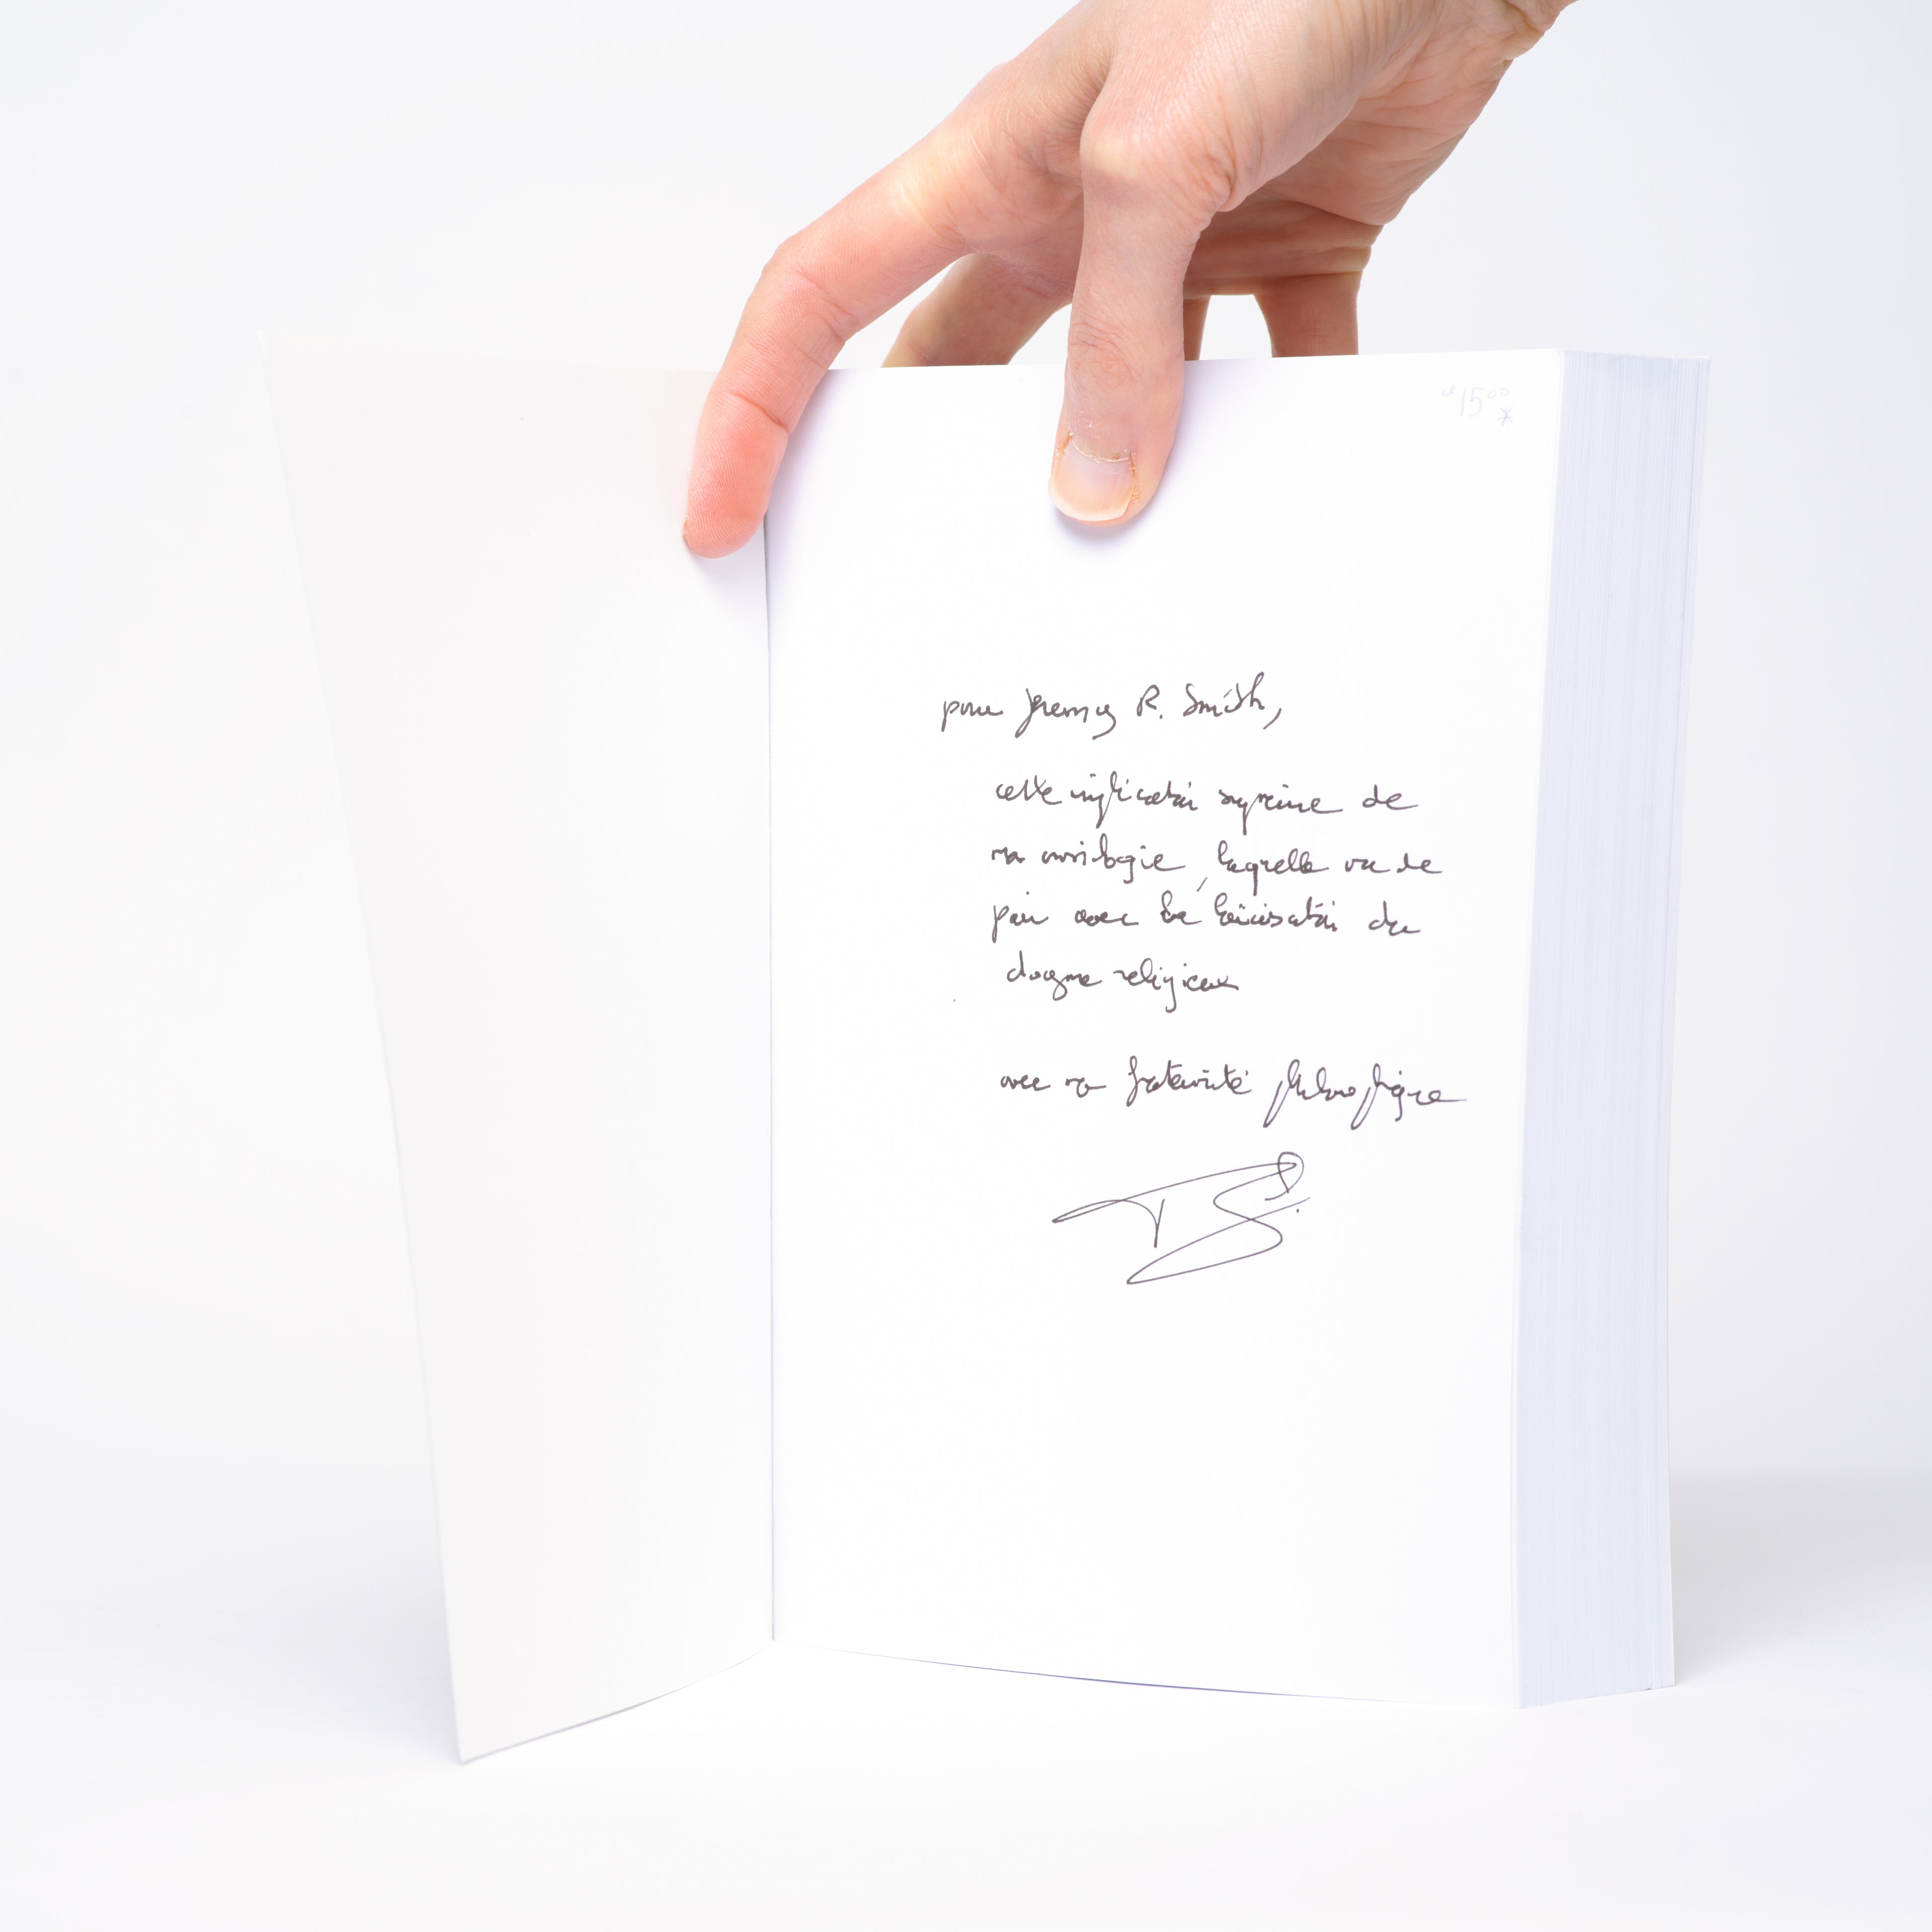 15⁰⁰
*
pour Jeremy R. Smith,
cette implication suprême de
ma laquelle va de
pair avec la laïcisation du
dogme religieux
avec ma fraternité philosophique